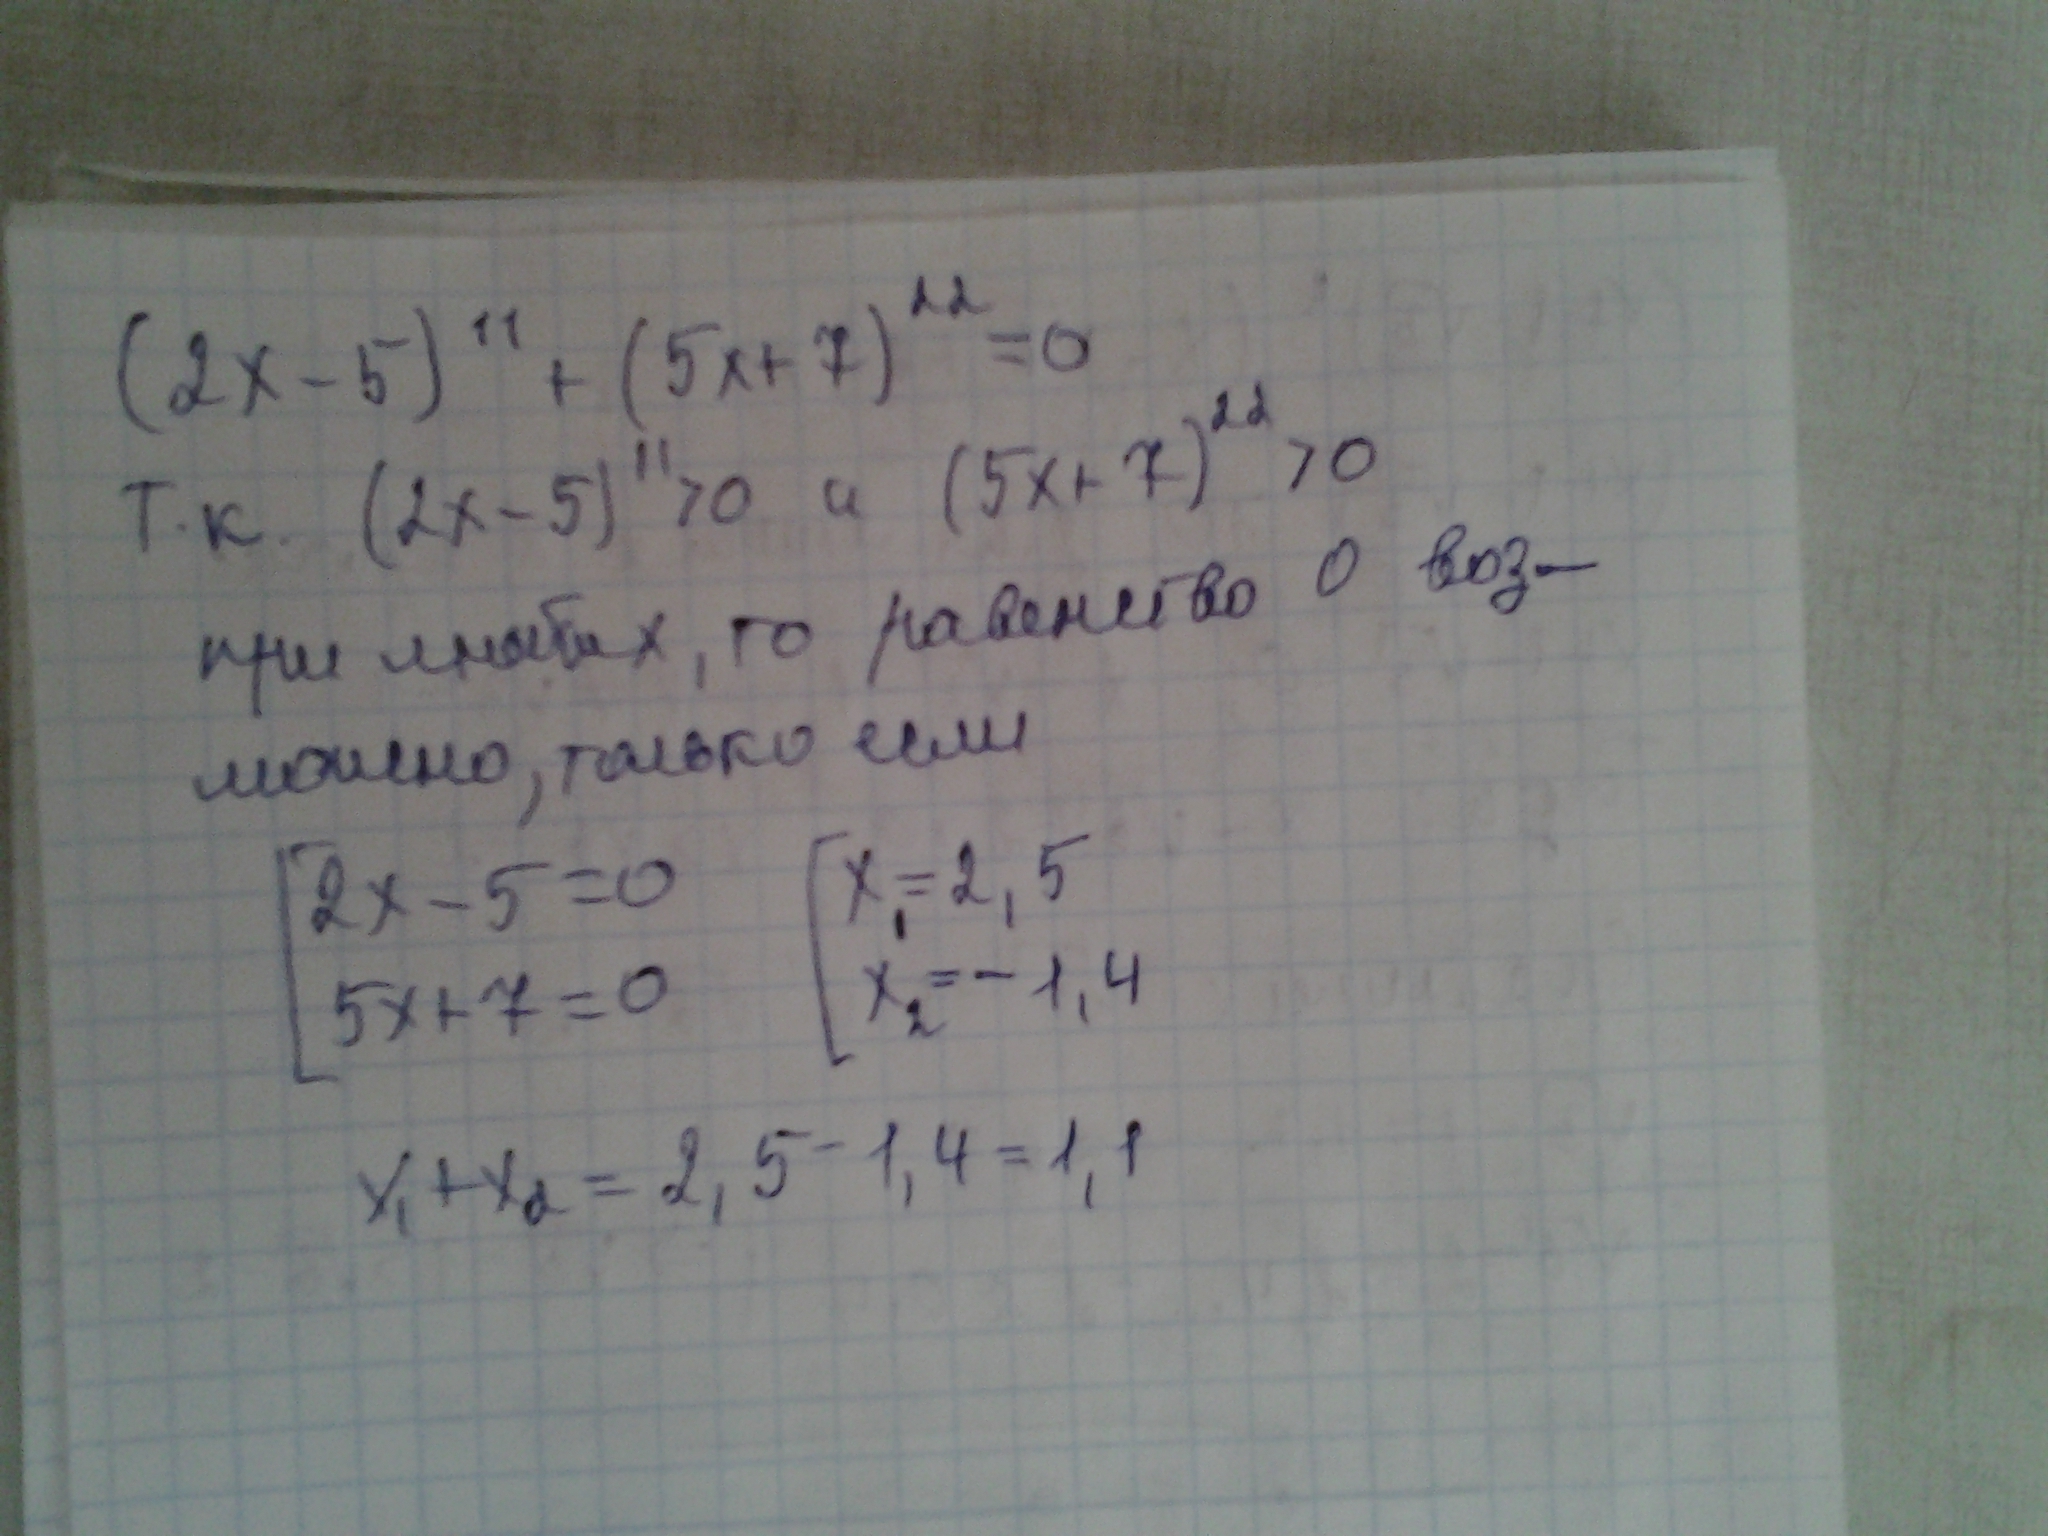 (2x-5)¹¹ + (5x+7)²² = 0
Т.к. (2x-5)¹¹ > 0 и (5x+7)²² > 0
при любых, то равенство 0 воз-
можно, только если
[2x-5=0 [x₁=2,5
5x+7=0 x₂=-1,4
x₁+x₂=2,5-1,4=1,1